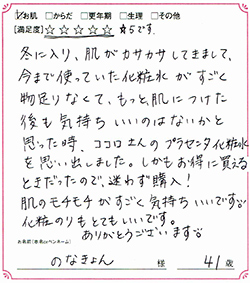 ☑お肌 □からだ □更年期 □生理 □その他
[満足度]☆☆☆☆☆ ☆5です。
冬に入り、肌がカサカサしてきまして、
今まで使っていた化粧水がすごく
物足りなくて、もっと、肌につけた
後も気持ちいいのはないかと
思った時、ココロさんのプラセンタ化粧水
を思い出しました。しかもお得に買える
ときだったので、迷わず購入!
肌のモチモチがすごく気持ちいいです
化粧のりもとてもいいです。
ありがとうございます
お名前(本名orペンネーム)
のなきょん 様 41歳